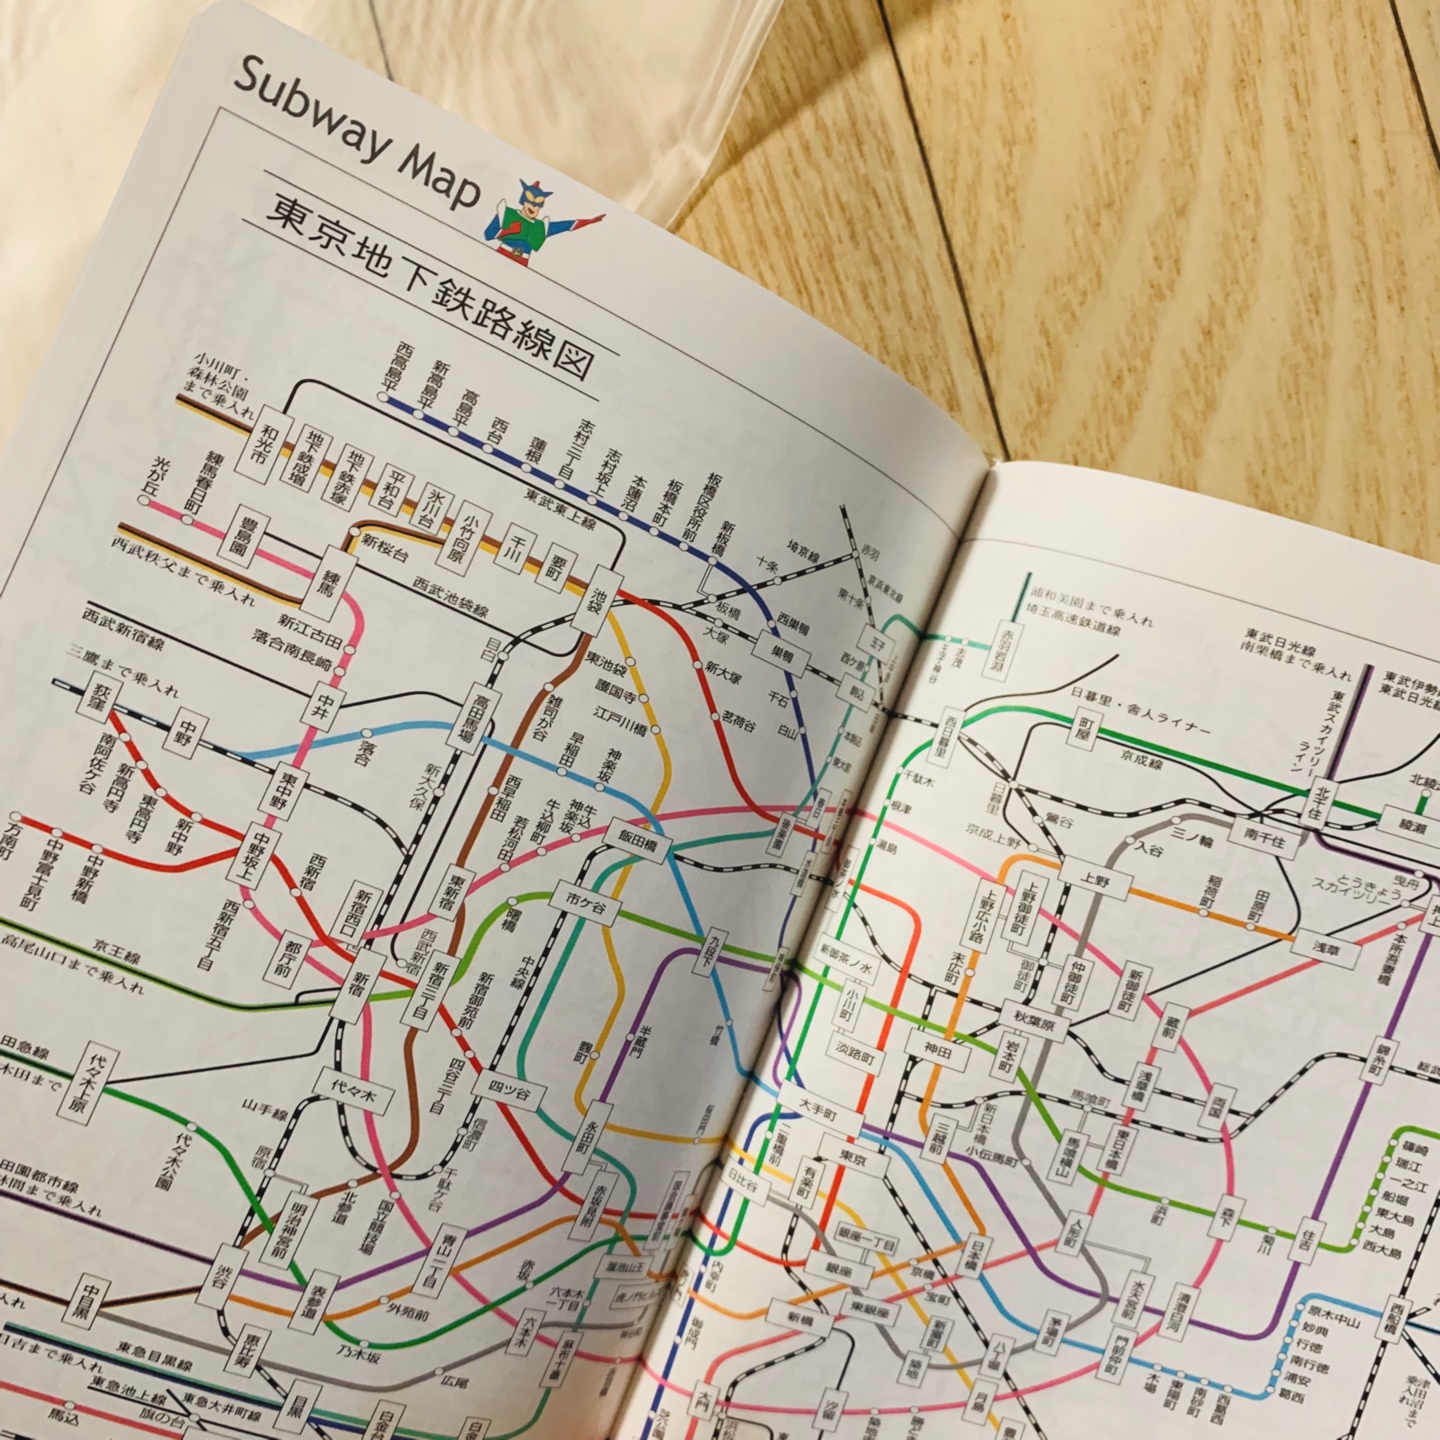 Subway Map
東京地下鉄路線図
小川町・
森林公園
まで乗入れ
和光市
地下鉄成増
地下鉄赤塚
平和台
氷川台
小竹向原
千川
要町
池袋
西高島平
新高島平
高島平
西台
蓮根
志村三丁目
志村坂上
本蓮沼
板橋本町
板橋区役所前
新板橋
東武東上線
光が丘
練馬春日町
豊島園
練馬
新桜台
西武秩父まで乗入れ
西武池袋線
新江古田
落合南長崎
西武新宿線
三鷹まで乗入れ
荻窪
中野
中井
落合
東中野
高田馬場
目白
埼京線
十条
赤羽
京浜東北線
東十条
板橋
大塚
西巣鴨
巣鴨
新大塚
茗荷谷
千石
白山
東池袋
護国寺
江戸川橋
雑司が谷
早稲田
神楽坂
西早稲田
新大久保
南阿佐ケ谷
新高円寺
東高円寺
新中野
中野坂上
方南町
中野富士見町
中野新橋
西新宿
新宿西口
西新宿五丁目
都庁前
東新宿
若松河田
牛込柳町
牛込神楽坂
飯田橋
市ケ谷
曙橋
九段下
西武新宿
新宿三丁目
新宿
新宿御苑前
中央線
京王線
高尾山口まで乗入れ
四谷三丁目
四ツ谷
麹町
半蔵門
竹橋
永田町
代々木上原
代々木
代々木公園
山手線
原宿
信濃町
千駄ケ谷
北参道
国立競技場
明治神宮前
渋谷
表参道
青山一丁目
外苑前
赤坂
赤坂見附
溜池山王
六本木一丁目
六本木
乃木坂
麻布十番
中目黒
恵比寿
広尾
東急目黒線
東急池上線
東急大井町線
目黒
白金台
旗の台
馬込
王子
王子神谷
志茂
赤羽岩淵
浦和美園まで乗入れ
埼玉高速鉄道線
東武日光線
南栗橋まで乗入れ
東武スカイツリーライン
西日暮里
日暮里・舎人ライナー
町屋
京成線
北千住
綾瀬
南千住
三ノ輪
入谷
鶯谷
日暮里
京成上野
千駄木
根津
湯島
上野
稲荷町
田原町
浅草
とうきょう
スカイツリー
曳舟
本所吾妻橋
上野広小路
上野御徒町
御徒町
仲御徒町
新御徒町
蔵前
末広町
秋葉原
新御茶ノ水
小川町
淡路町
神田
岩本町
浅草橋
両国
錦糸町
馬喰町
新日本橋
馬喰横山
東日本橋
大手町
三越前
小伝馬町
二重橋前
東京
有楽町
日比谷
銀座一丁目
銀座
京橋
日本橋
宝町
人形町
浜町
森下
菊川
住吉
篠崎
瑞江
一之江
船堀
東大島
大島
西大島
水天宮前
清澄白河
茅場町
門前仲町
新橋
東銀座
新富町
八丁堀
築地
月島
内幸町
御成門
大門
汐留
木場
東陽町
南砂町
西葛西
葛西
浦安
南行徳
行徳
妙典
原木中山
西船橋